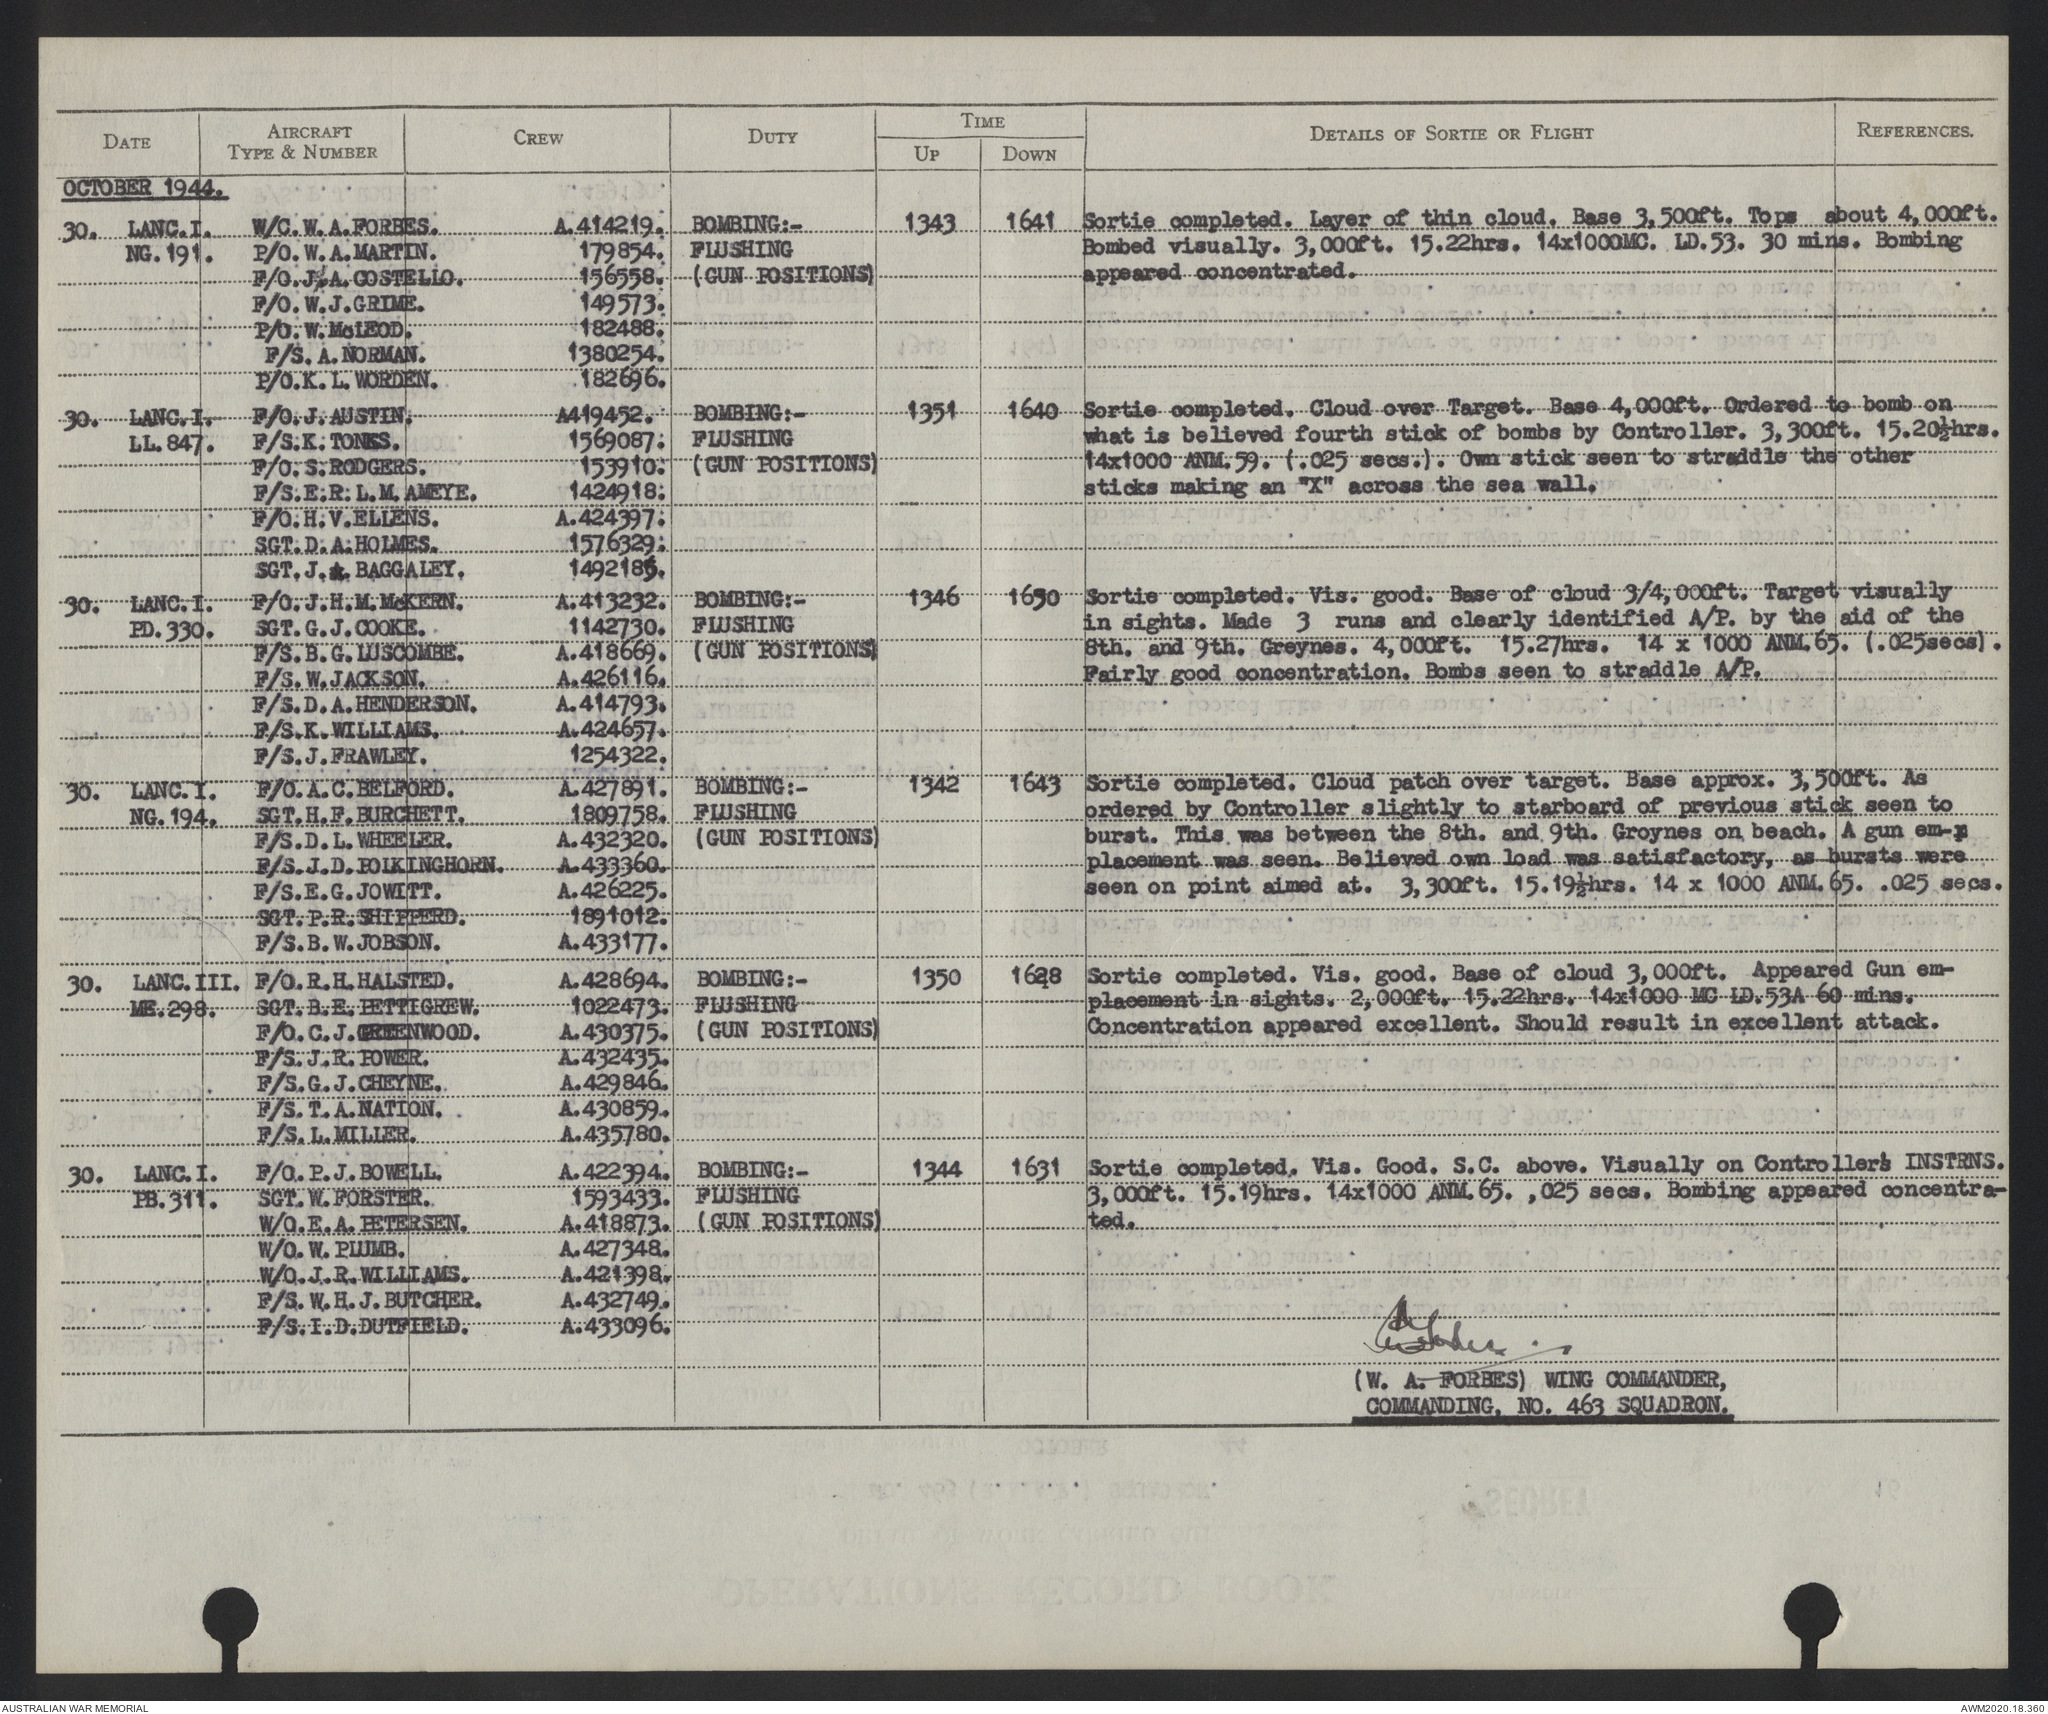 DATE AIRCRAFT TYPE & NUMBER CREW DUTY TIME UP DOWN DETAILS OF SORTIE OR FLIGHT REFERENCES.
OCTOBER 1944.
30. LANC.I. W/C. W.A.FORBES. A.414219. BOMBING:- 1343 1641 Sortie completed. Layer of thin cloud. Base 3,500ft. Tops about 4,000ft.
NG.191. P/O. W.A.MARTIN. 179854. FLUSHING Bombed visually. 3,000ft. 15.22hrs. 14x1000MC. LD.53. 30 mins. Bombing
F/O.J.A.COSTELLO. 156558. (GUN POSITIONS) appeared concentrated.
F/O.W.J.GRIME. 149573.
P/O.W.McLEOD. 182488.
F/S.A.NORMAN. 1380254.
P/O.K.L.WORDEN. 182696.
30. LANC.I. F/O.J.AUSTIN. A419452. BOMBING:- 1351 1640 Sortie completed. Cloud over Target. Base 4,000ft. Ordered to bomb on
LL.847. F/S.K.TONKS. 1569087. FLUSHING what is believed fourth stick of bombs by Controller. 3,300ft. 15.20½hrs.
F/O.S.RODGERS. 153910. (GUN POSITIONS) 14x1000 ANM.59. (.025 secs.). Own stick seen to straddle the other
F/S.E.R.L.M.AMEYE. 1424918. sticks making an "X" across the sea wall.
F/O.H.V.ELLENS. A.424397.
SGT.D.A.HOLMES. 1576329.
SGT.J. BAGGALEY.
30. LANC.I. F/O.J.H.M.McKERN. A.413232. BOMBING:- 1346 1650 Sortie completed. Vis. good. Base of cloud 3/4,000ft. Target visually
PD.330. SGT.G.J.COOKE. 1142730. FLUSHING in sights. Made 3 runs and clearly identified A/P. by the aid of the
F/S.B.G.LUSCOMBE. A.418669. (GUN POSITIONS) 8th. and 9th. Greynes. 4,000ft. 15.27hrs. 14 x 1000 ANM.65. (.025secs).
F/S.W.JACKSON. A.426116. Fairly good concentration. Bombs seen to straddle A/P.
F/S.D.A.HENDERSON. A.414793.
F/S.K.WILLIAMS. A.424657.
F/S.J.FRAWLEY. 1254322.
30. LANC.I. F/O.A.C.BELFORD. A.427891. BOMBING:- 1342 1643 Sortie completed. Cloud patch over target. Base approx. 3,500ft. As
NG.194. SGT.H.F.BURCHETT. 1809758. FLUSHING ordered by Controller slightly to starboard of previous stick seen to
F/S.D.L.WHEELER. A.432320. (GUN POSITIONS) burst. This was between the 8th. and 9th. Groynes on beach. A gun em-
F/S.J.D.POLKINGHORN. A.433360. placement was seen. Believed own load was satisfactory, as bursts were
F/S.E.G.JOWITT. A.426225. seen on point aimed at. 3,300ft. 15.19½hrs. 14 x 1000 ANM.65. .025 secs.
SGT.P.R.SHIPPERD. 1891012.
F/S.B.W.JOBSON. A.433177.
30. LANC.III. F/O.R.H.HALSTED. A.428694. BOMBING:- 1350 1628 Sortie completed. Vis. good. Base of cloud 3,000ft. Appeared Gun em-
ME.298. SGT.B.E.PETTIGREW. 1022473. FLUSHING placement in sights. 2,000ft. 15.22hrs. 14x1000 MC LD.53A 60 mins.
F/O.C.J.GREENWOOD. A.430375. (GUN POSITIONS) Concentration appeared excellent. Should result in excellent attack.
F/S.J.R.POWER. A.432435.
F/S.G.J.CHEYNE. A.429846.
F/S.T.A.NATION. A.430859.
F/S.L.MILLER. A.435780.
30. LANC.I. F/O.P.J.BOWELL. A.422394. BOMBING:- 1344 1631 Sortie completed. Vis. Good. S.C. above. Visually on Controller's INSTRNS.
PB.311. SGT.W.FORSTER. 1593433. FLUSHING 3,000ft. 15.19hrs. 14x1000 ANM.65. ,025 secs. Bombing appeared concentra-
W/O.E.A.PETERSEN. A.418873. (GUN POSITIONS) ted.
W/O.W.PLUMB. A.427348.
W/O.J.R.WILLIAMS. A.421398.
F/S.W.H.J.BUTCHER. A.432749.
F/S.I.D.DUTFIELD. A.433096.
(W. A. FORBES) WING COMMANDER,
COMMANDING, NO. 463 SQUADRON.
AUSTRALIAN WAR MEMORIAL
AWM2020.18.360